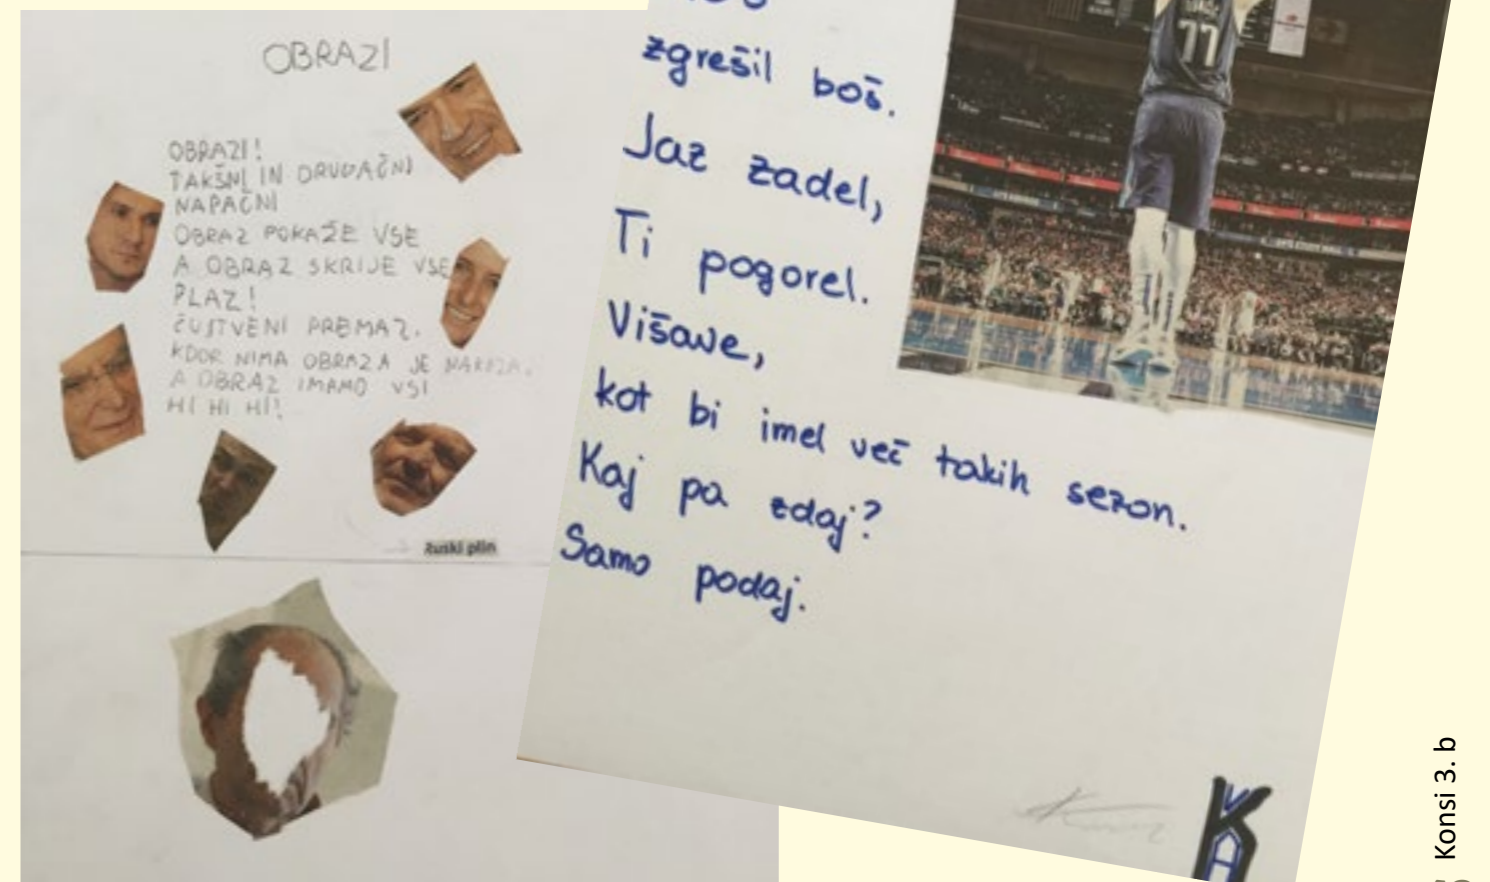 OBRAZI
OBRAZI!
TAKŠNI IN DRUGAČNI
NAPAČNI
OBRAZ POKAŽE VSE
A OBRAZ SKRIJE VSE
PLAZ!
ČUSTVENI PREMAZ.
KDOR NIMA OBRAZA JE
A OBRAZ IMAMO VSI
HI HI HI!
Ruski plin
zgrešil boš.
Jaz zadel,
Ti pogorel.
Višave,
kot bi imel več takih sezon.
Kaj pa zdaj?
Samo podaj.
77
Konsi 3. b